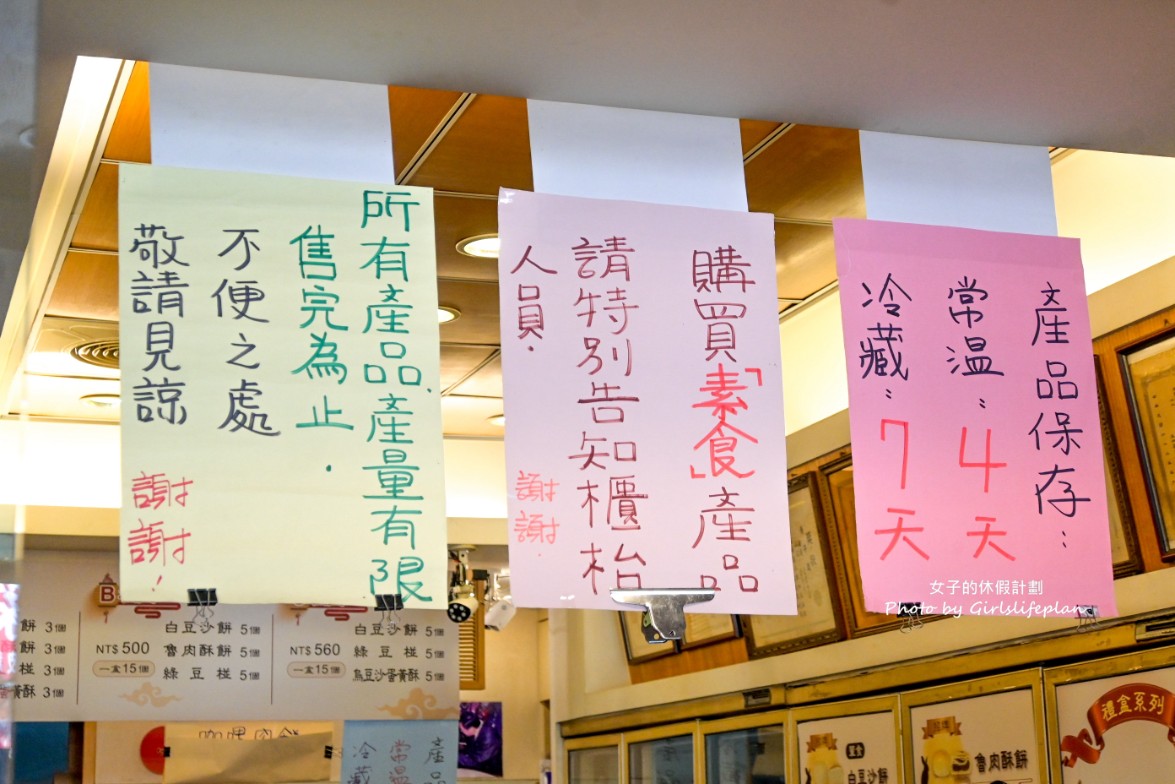 所有產品、產量有限
售完為止.
不便之處
敬請見諒
謝謝!
購買「素食」產品
請特別告知櫃枱
人員.
謝謝.
產品保存:
常温: 4天
冷藏: 7天
女子的休假計劃
Photo by Girlslifeplan
B
餅 3個
餅 3個
椪 3個
黃酥 3個
NT$ 500
一盒15個
白豆沙餅 5個
魯肉酥餅 5個
綠豆椪 5個
NT$ 560
一盒15個
白豆沙餅 5個
綠豆椪 5個
烏豆沙蛋黃酥 5個
產品
常温
冷藏
白豆沙餅
魯肉酥餅
禮盒系列